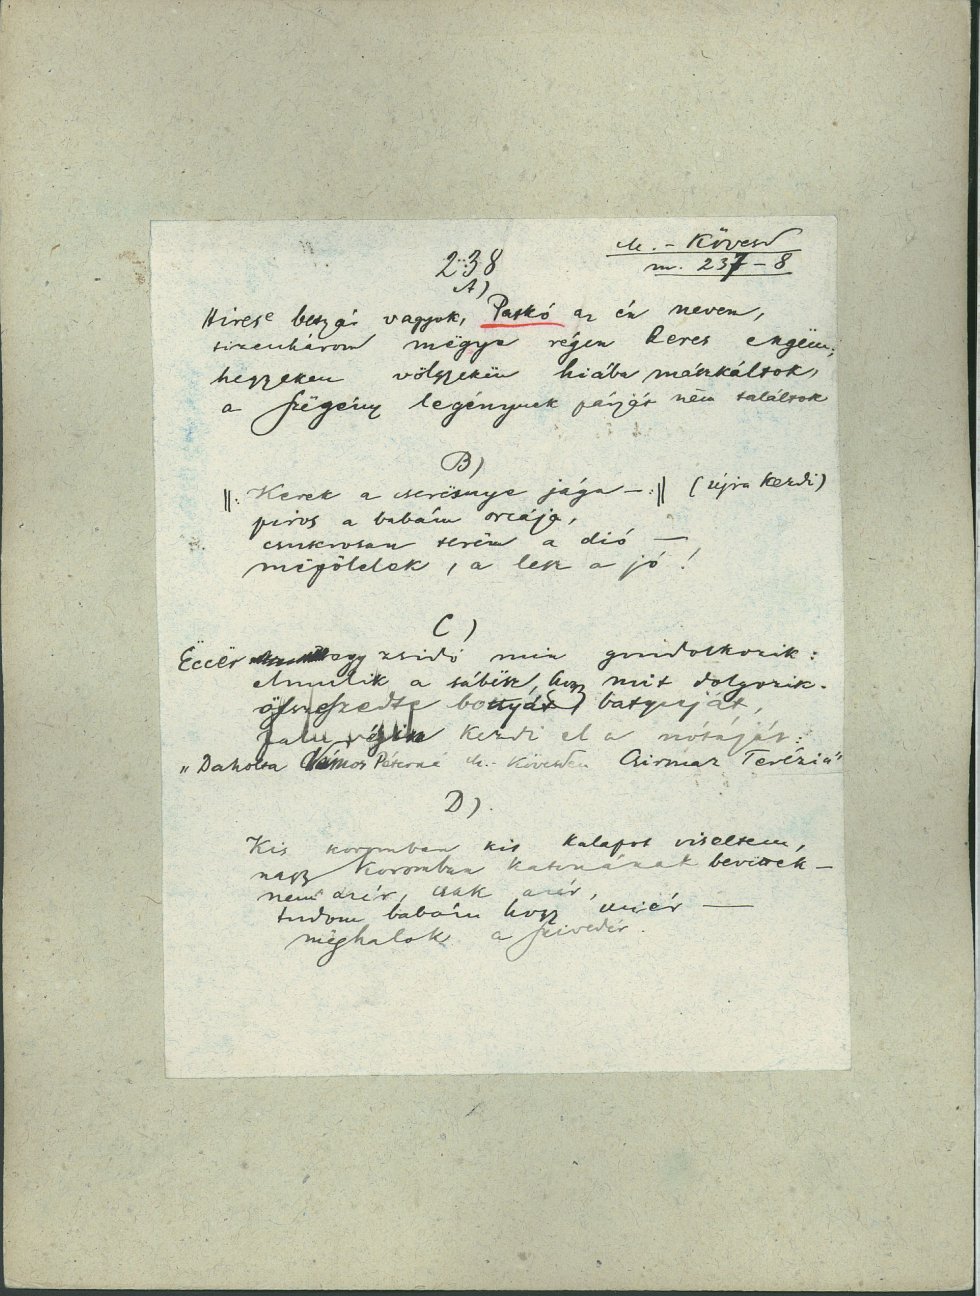 M. - Kövesd
m. 237-8
238
A)
Hires betyár vagyok, Paskó az én nevem,
tizenhárom mëgye régen keres engëm;
hegyeken völgyekën hiába mászkáltok,
a szëgény legénynek párját nëm találtok
B)
||: Kerek a cserësnye jága - :|| (újra kezdi)
piros a babám orcája,
csukrosan terëm a dió —
mëgölelek, a lesz a jó!
C)
Ëccër egy zsidó min gondoskozik:
elmulik a sábësz, hogy mit dolgozik.
összeszedte bottyát, batyuját,
falu végin kezdi el a nótáját:
"Dalolta Vámos Péterné M.-Kövesden Csirmaz Terézia"
D)
Kis koromban kis kalapot viseltem,
nagy koromban katonának bevittek —
nem azér, csak azér,
tudom babám hogy miér —
mëghalok a szivedér.